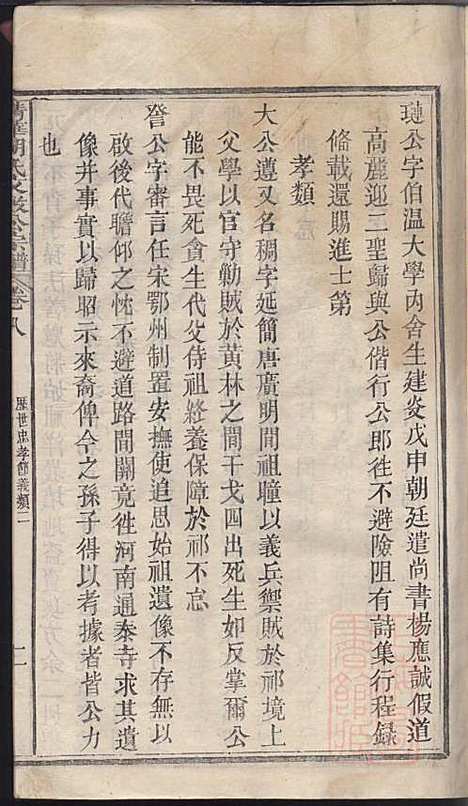 璉公字伯温大學內舍生建炎戊申朝廷遣尚書楊應誠假道
高麗迎二聖歸與公偕行公即徃不避險阻有詩集行程録
脩載還賜進士第
孝類
大公遵又名稠字延簡唐廣明間祖瞳以義兵禦賊於祁境上
父學以官守勦賊於黃林之間干戈四出死生如反掌爾公
能不畏死貪生代父侍祖終養保障於祁不忘
詧公字審言任宋鄂州制置安撫使追思始祖遺像不存無以
啟後代瞻仰之忱不避道路間關竟徃河南通泰寺求其遺
像并事實以歸昭示來裔俾今之孫子得以考據者皆公力
也
清華胡氏文敏公宗譜
卷八
歷世忠孝節義類二
二